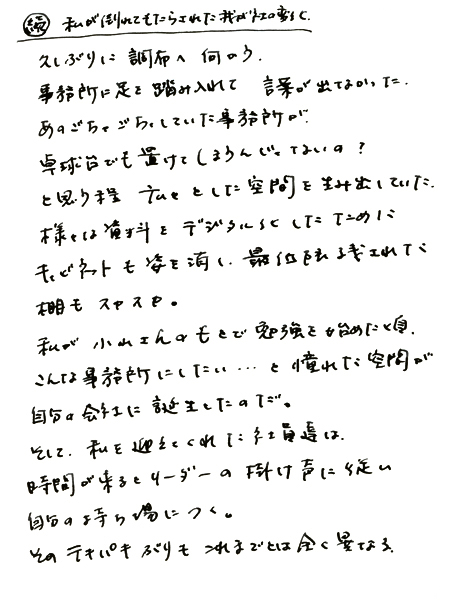 続 私が倒れてもたらされた我が社の変化
久しぶりに調布へ向かう。
事務所に足を踏み入れて 言葉が出てなかった。
あのごちゃごちゃしていた事務所が、
卓球台でも置けてしまうんじゃないの?
と思う程 広々とした空間を生み出していた。
様々な資料をデジタル化したために
キャビネットも姿を消し、最低限残された
棚もスカスカ。
私が小山さんのもとで勉強を始めた頃、
こんな事務所にしたい…と憧れた空間が
自分の会社に誕生したのだ。
そして、私を迎えてくれた社員達は、
時間が来るとリーダーの掛け声に従い
自分の持ち場につく。
そのテキパキぶりもこれまでとは全く異なる。